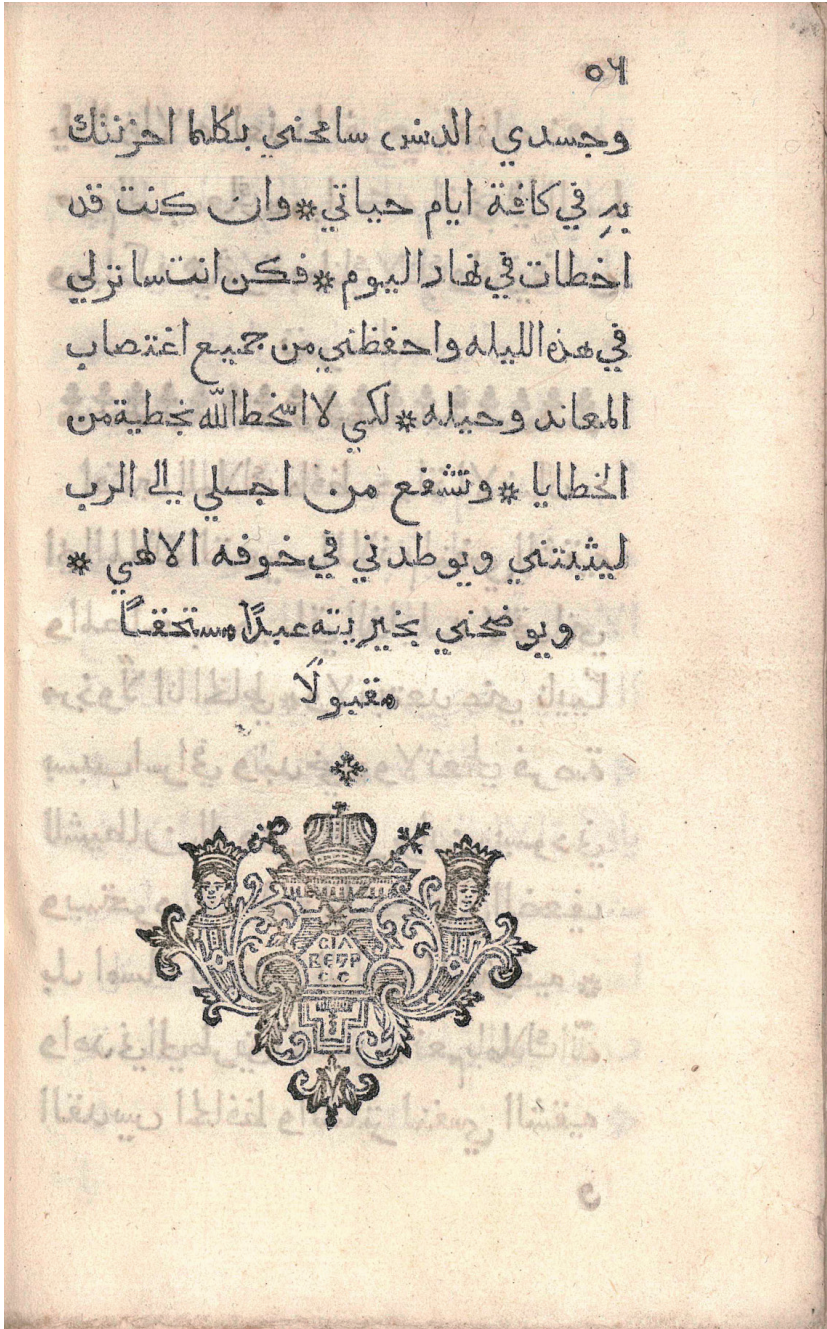 ٥٦
وجسدي الدنس سامحني بكلما احزنتك
بهِ في كافة ايام حياتي * وان كنت قد
اخطات في نهار اليوم * فكن انت ساترلي
في هذه الليله واحفظني من جميع اغتصاب
المعاند وحيله * لكي لا اسخط الله بخطية من
الخطايا * وتشفع من اجلي الى الرب
ليثبتني ويوطدني في خوفه الالهي *
ويوضحني بخيريته عبدًا مستحقًا
مقبولًا